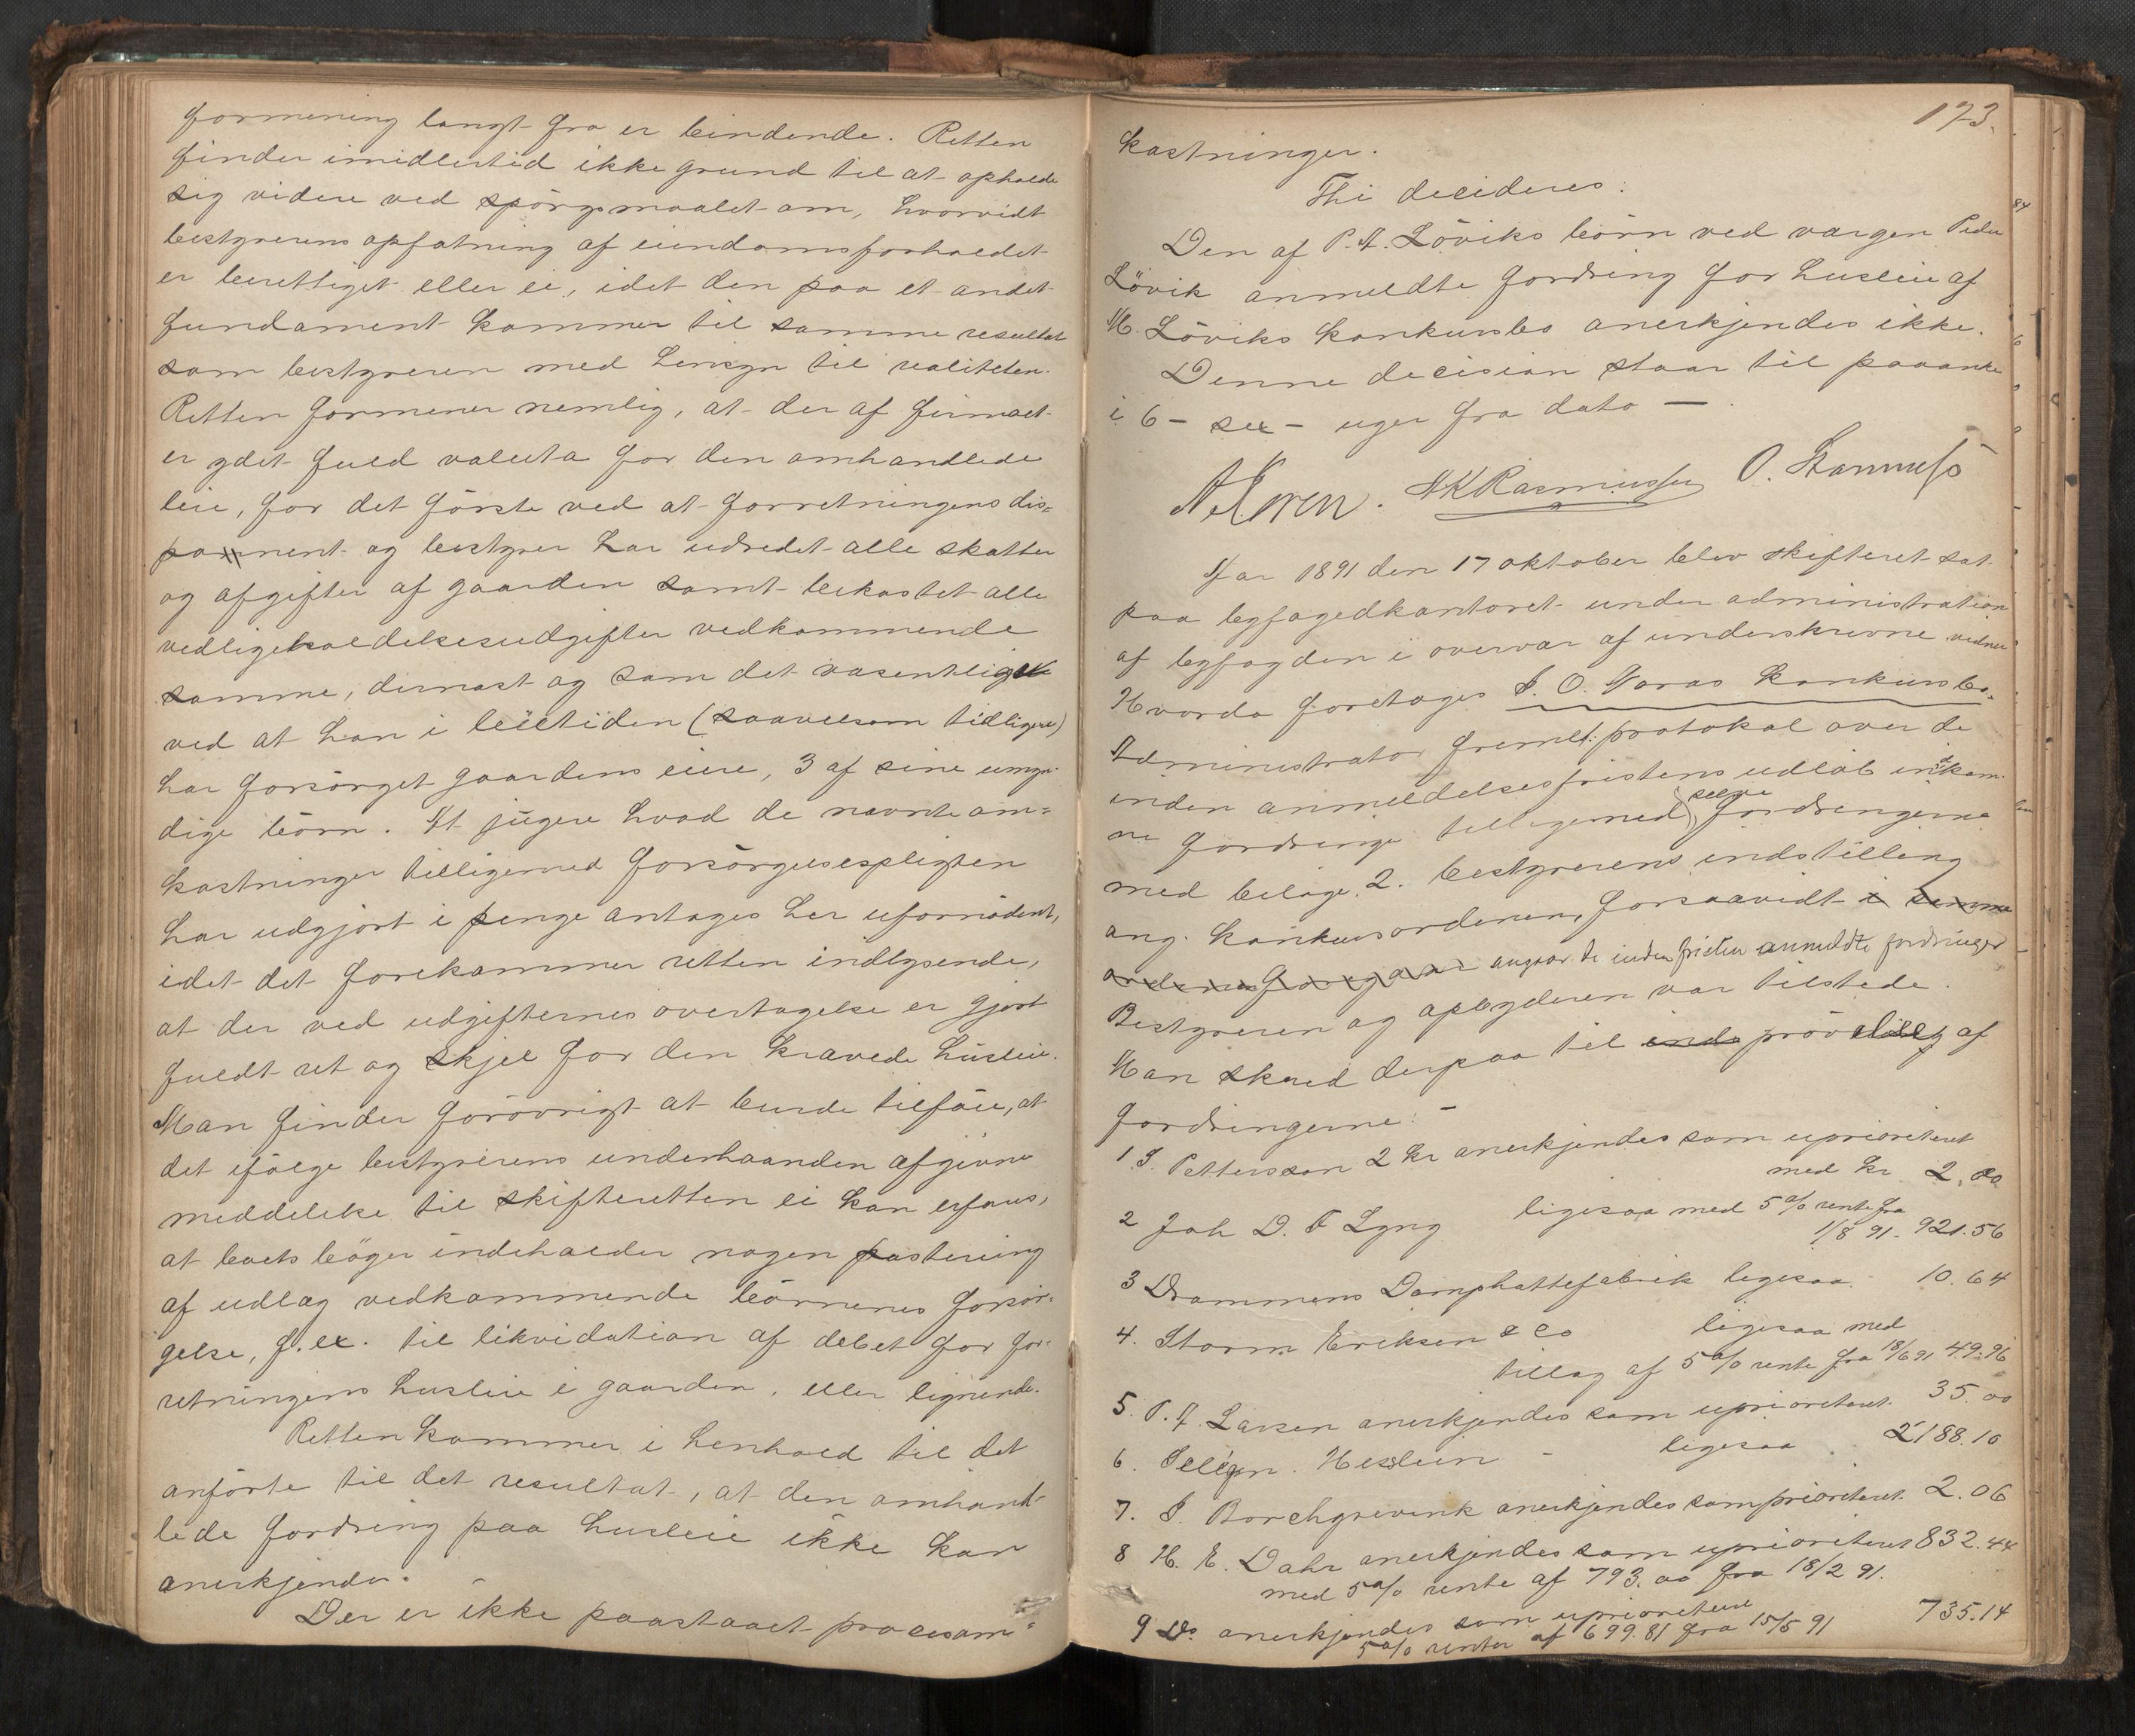 formening langt fra er bindende. Retten
finder imidlertid ikke grund til at opholde
sig videre ved spörgsmaalet om, hvorvidt
bestyrerens opfatning af eiendomsforholdet
er berettiget eller ei, idet den paa et andet
fundament kommer til samme resultat
som bestyreren med hensyn til realiteten.
Retten formener nemlig, at der af firmaet
er ydet fuld valuta for den omhandlede
leie, for det förste ved at forretningens dis=
ponent og bestyrer har udredet alle skatter
og afgifter af gaarden samt bekostet alle
vedligeholdelsesudgifter vedkommende
samme, dernæst og som det væsentligste
ved at han i leietiden (saavelsom tidligere)
har forsörget gaardens eiere, 3 af sine umyn-
dige börn. At jugere hvad de nævnte om=
kostninger tilligemed forsörgelsespligten
har udgjort i penge antages her ufornödent,
idet det forekommer retten indlysende,
at der ved udgifternes overtagelse er gjort
fuldt ret og skjel for den krævede husleie.
Man finder forövrigt at burde tilföie, at
det ifölge bestyrerens underhaanden afgivne
meddelelse til skifteretten ei kan erfares,
at boets böger indeholder nogen postering
af udlæg vedkommende börnenes forsör-
gelse, f. ex. til likvidation af debet for for-
retningens husleie i gaarden, eller lignende.
Retten kommer i henhold til det
anförte til det resultat, at den omhand-
lede fordring paa husleie ikke kan
anerkjendes.
Der er ikke paastaaet procesom=
173.
kostninger.
Thi decideres:
Den af P. A. Löviks börn ved værgen Peder
Lövik anmeldte fordring for husleie af
M. Löviks konkursbo anerkjendes ikke.
Denne decision staar til paaanke
i 6 - sex - uger fra dato —
N. K. Rasmussen O.
Aar 1891 den 17 oktober blev skifteret sat
paa byfogedkontoret under administration
af byfogden i overvær af underskrevne vidner
Hvorda foretoges J. O. Moras konkursbo.
Administrator freml. protokol over de
inden anmeldelsesfristens udlöb indkom-
ne fordringer tilligemed selve fordringerne
med bilage. 2. bestyrerens indstilling
ang. konkursordenen, forsaavidt i samme
angaar de inden fristen anmeldte fordringer
Bestyreren og opbyderen var tilstede.
Man skred derpaa til prövelse af
fordringerne:
1. J. Pettersson 2 kr anerkjendes som uprioriteret
med kr 2.00
2 Joh D. F Lyng ligesaa med 5% rente fra
1/8 91. 921.56
3 Drammens Damphattefabrik ligesaa 10.64
4. Storm Eriksen & co ligesaa med
tillæg af 5% rente fra 18/6 91 49.96
5. P. A. Larsen anerkjendes som uprioriteret 35.00
6. Seligm. Hesslein - ligesaa 2188.10
7. J. Borchgrevink anerkjendes som prioriteret 2.06
8 H. E. Dahr anerkjendes som uprioriteret 832.44
med 5% rente af 793.00 fra 18/2 91.
9 Do anerkjendes som uprioriteret 735.14
5% renter af 699.81 fra 15/5 91